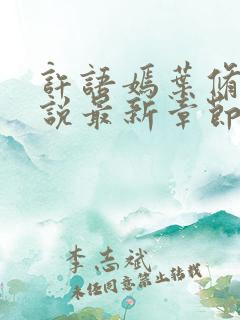 許語嫣葉脩
說最新章節
李志斌
未经同意禁止转载